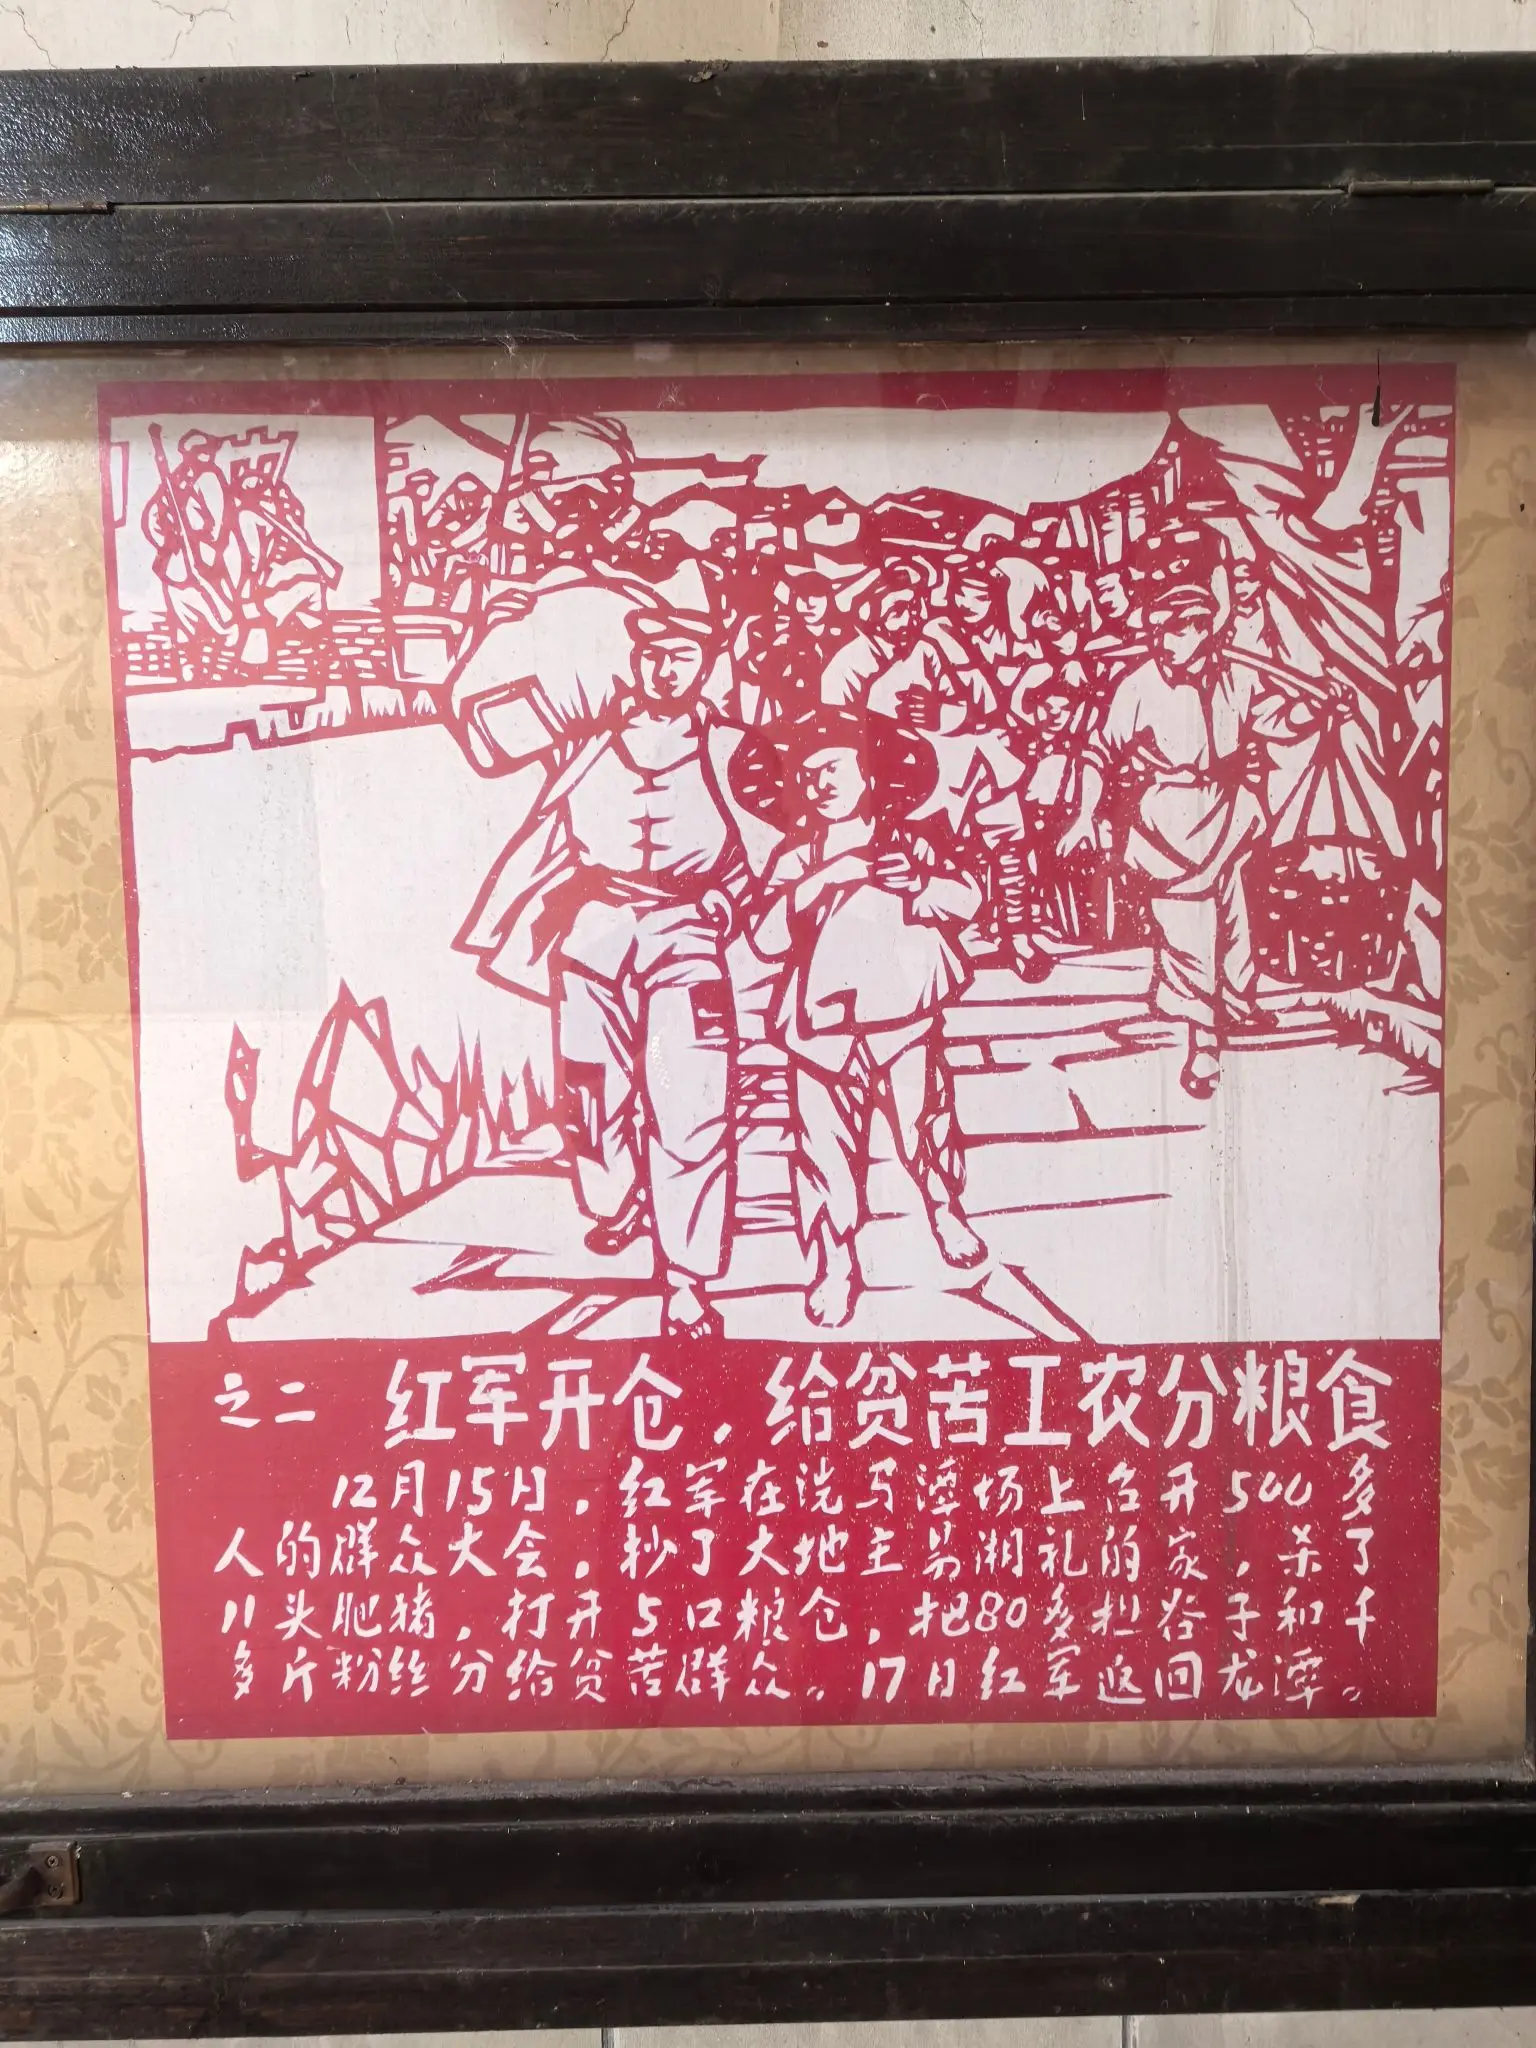 之二 红军开仓，给贫苦工农分粮食
12月15日，红军在洗马潭场上召开500多
人的群众大会，抄了大地主易湘礼的家，杀了
11头肥猪，打开5口粮仓，把80多担谷子和千
多斤粉丝分给贫苦群众。17日红军返回龙潭。